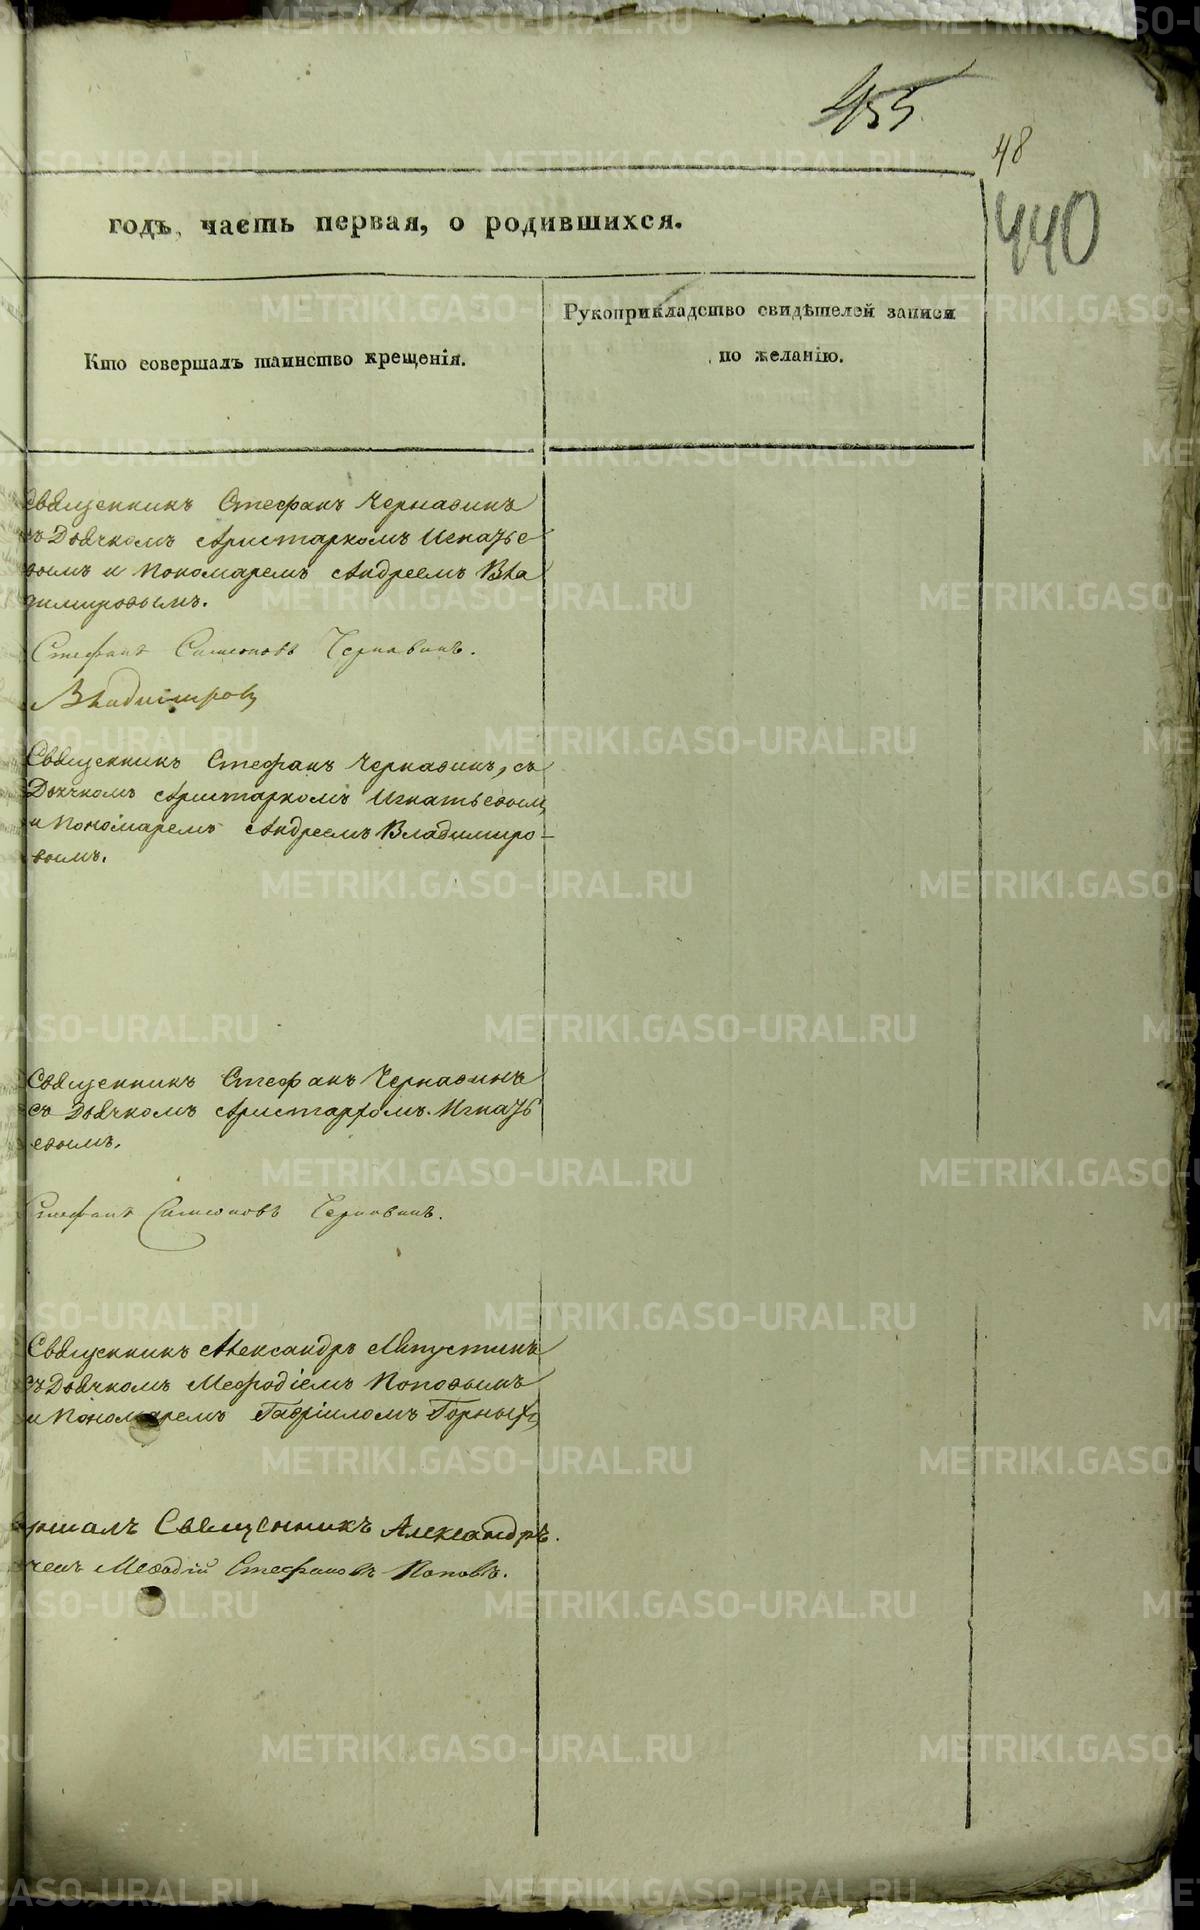 455
48
440
годъ, часть первая, о родившихся.
Кто совершалъ таинство крещенія.
Рукоприкладство свидѣтелей записи
по желанію.
Священникъ Стефанъ Чернавинъ
съ Дьячкомъ Аристархомъ Игнатье
вымъ и Пономаремъ Андреемъ Вла
димировымъ.
Стефанъ Симеоновъ Чернавинъ.
Владимировъ
Священникъ Стефанъ Чернавинъ, съ
Дьячкомъ Аристархомъ Игнатьевым
и Пономаремъ Андреемъ Владимиро-
вымъ.
Священникъ Стефанъ Чернавинъ
съ Дьячкомъ Аристархомъ Игнать
евымъ.
Стефанъ Симеоновъ Чернавинъ.
Священникъ Александръ Мпустинъ
съ Дьячкомъ Мефодіемъ Поповымъ
и Пономаремъ Гавріиломъ Горныхъ
Священникъ Александръ.
Мефодій Стефановъ Поповъ.
METRIKI.GASO-URAL.RU